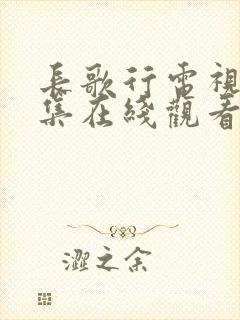 長歌行電視
集在綫觀看
澀之余